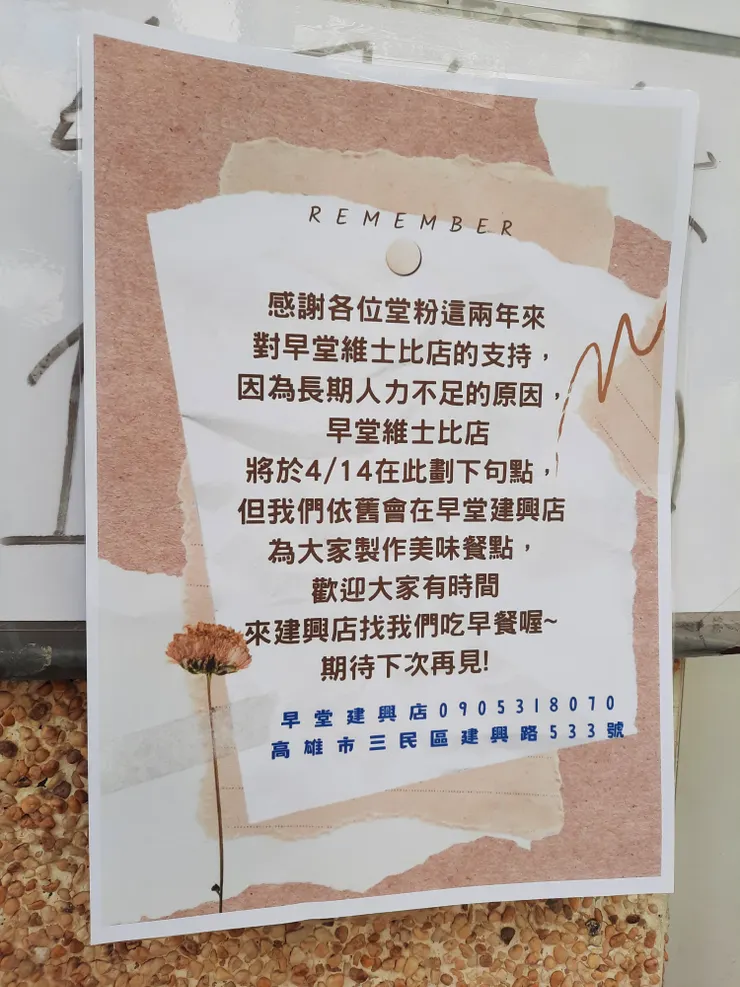 REMEMBER
感謝各位堂粉這兩年來
對早堂維士比店的支持，
因為長期人力不足的原因，
早堂維士比店
將於4/14在此劃下句點，
但我們依舊會在早堂建興店
為大家製作美味餐點，
歡迎大家有時間
來建興店找我們吃早餐喔~
期待下次再見!
早堂建興店0905318070
高雄市三民區建興路533號